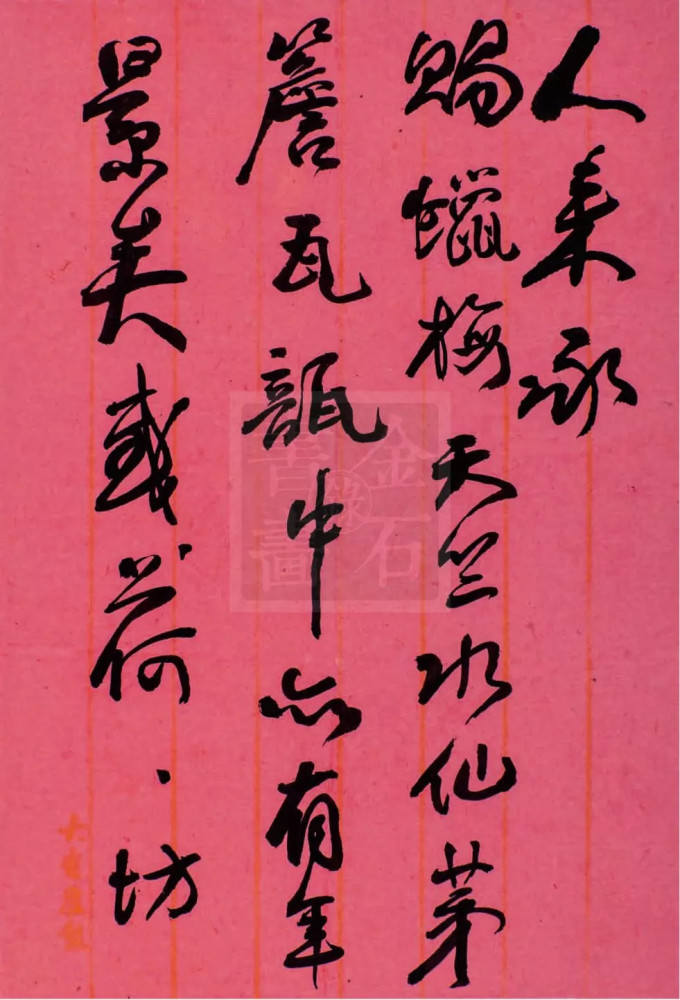 人來承
賜蠟梅天竺水仙茅
簷瓦瓿中亦有年
景矣感荷感荷坊
金石書畫